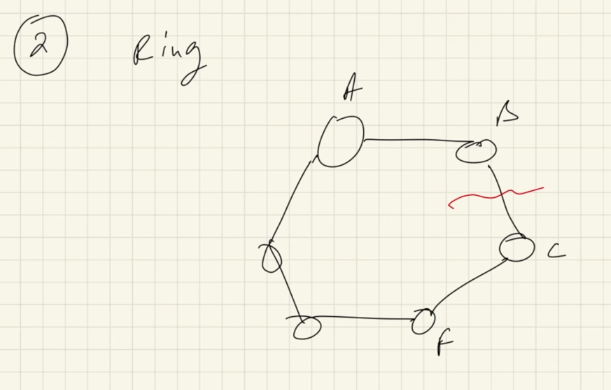 2 Ring
A
B
C
F